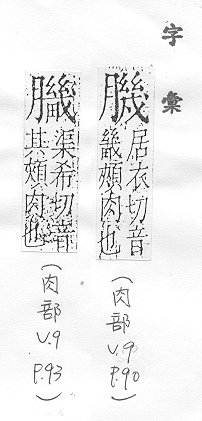 字彙
𦠄
居衣切音
幾頰肉也
（肉部 V.9 P.90）
渠希切音
其頰肉也
（肉部 V.9 P.93）